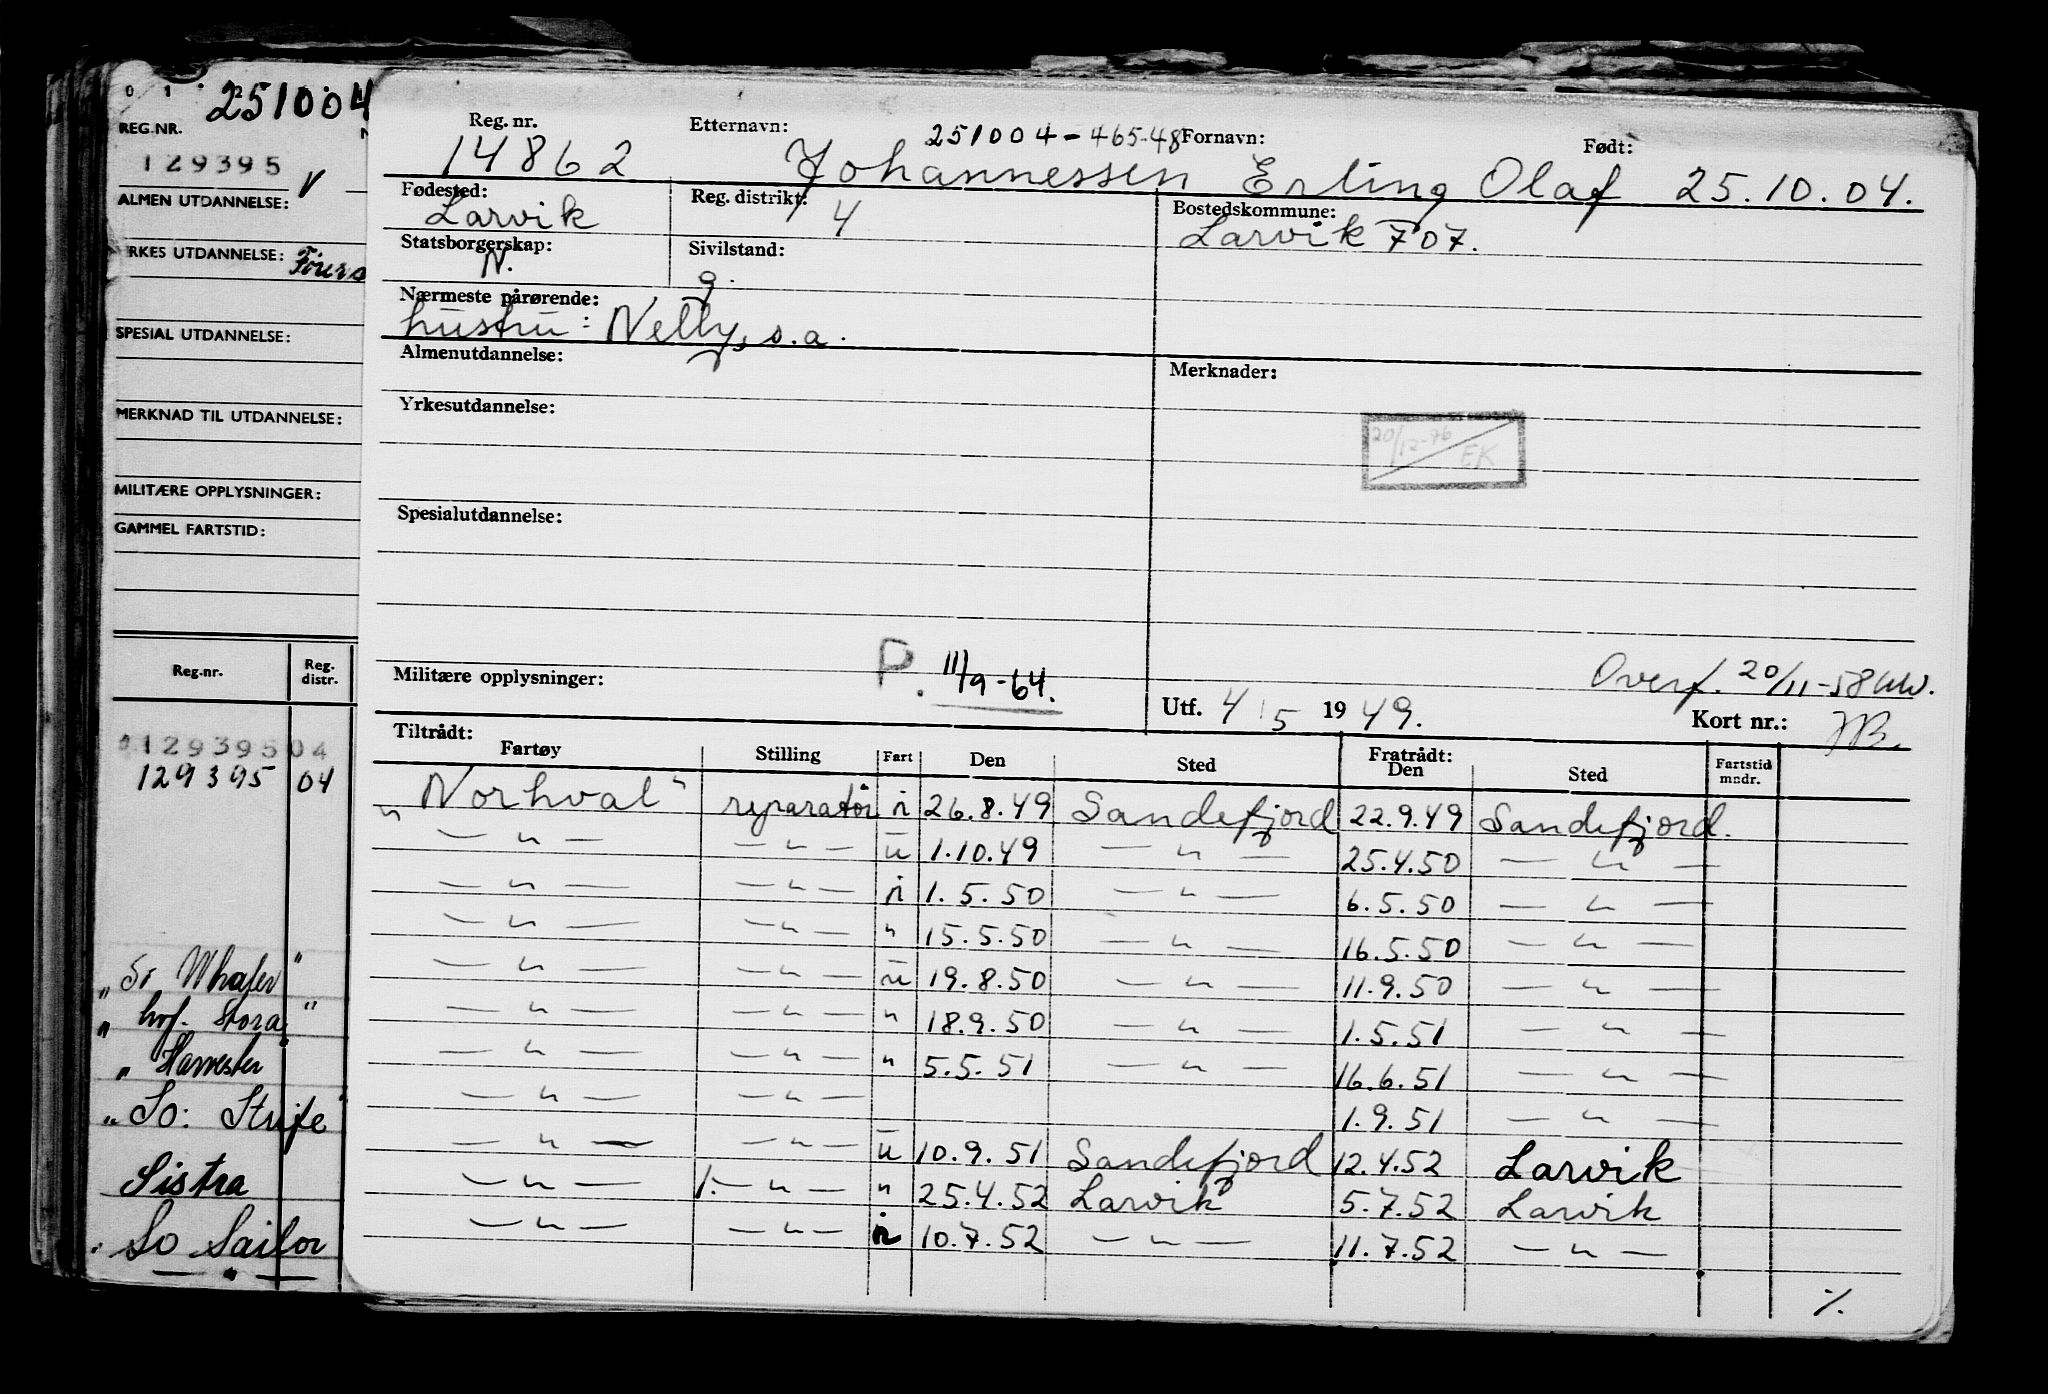 0 1 251004
REG.NR.
129395 V
ALMEN UTDANNELSE:
RKES UTDANNELSE:
SPESIAL UTDANNELSE:
MERKNAD TIL UTDANNELSE:
MILITÆRE OPPLYSNINGER:
GAMMEL FARTSTID:
Reg.nr. Reg. distr.
129395 04
129395 04
" So Whaler "
" hvf. Stora "
" Harvester
" So: Strife "
Sistra
So Sailor
— " —
Reg. nr. Etternavn: 251004-465-48 Fornavn: Født:
14862 Johannessen Erling Olaf 25.10.04.
Fødested: Reg. distrikt: Bostedskommune:
Larvik 4 Larvik 707.
Statsborgerskap: Sivilstand:
N. g.
Nærmeste pårørende:
hustru: Nelly, s.a.
Almenutdannelse: Merknader:
Yrkesutdannelse:
20/12-76 EK
Spesialutdannelse:
Militære opplysninger: P. 11/9-64.
Overf. 20/11-58
Utf. 4/5 1949. Kort nr.: JB.
Tiltrådt: Fratrådt:
Fartøy Stilling Fart Den Sted Den Sted Fartstid mndr.
"Norhval" reparatør i 26.8.49 Sandefjord 22.9.49 Sandefjord.
— " — — " — u 1.10.49 — " — 25.4.50 — " —
— " — — " — i 1.5.50 — " — 6.5.50 — " —
— " — — " — " 15.5.50 — " — 16.5.50 — " —
— " — — " — u 19.8.50 — " — 11.9.50 — " —
— " — — " — " 18.9.50 — " — 1.5.51 — " —
— " — — " — " 5.5.51 — " — 16.6.51 — " —
— " — — " — 1.9.51 — " —
— " — — " — u 10.9.51 Sandefjord 12.4.52 Larvik
— " — 1. — " — " 25.4.52 Larvik 5.7.52 Larvik
— " — — " — i 10.7.52 — " — 11.7.52 — " —
%